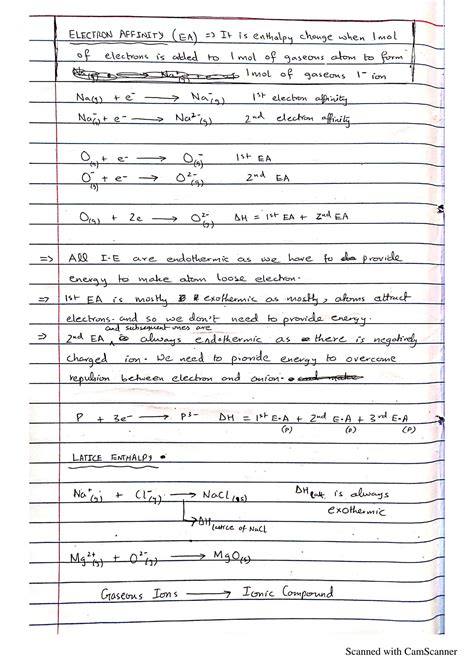 ELECTRON AFFINITY (EA) => It is enthalpy change when 1mol
of electrons is added to 1mol of gaseous atom to form
1mol of gaseous 1- ion
Na(g) + e⁻ → Na⁻(g) 1st electron affinity
Na⁻(g) + e⁻ → Na²⁻(g) 2nd electron affinity
O(g) + e- → O⁻(g) 1st EA
O⁻(g) + e- → O²⁻(g) 2nd EA
O(g) + 2e → O²⁻(g) ΔH = 1st EA + 2nd EA
=> All I.E are endothermic as we have to provide
energy to make atom loose electron.
=> 1st EA is mostly exothermic as mostly, atoms attract
electrons. and so we don't need to provide energy.
and subsequent ones are
=> 2nd EA always endothermic as there is negatively
charged ion. We need to provide energy to overcome
repulsion between electron and anion.
P + 3e⁻ → P³⁻ ΔH = 1st E.A + 2nd E.A + 3rd E.A
(P) (P) (P)
LATICE ENTHALPY
Na⁺(g) + Cl⁻(g) → NaCl(s) ΔHlatt. is always
exothermic
ΔH lattice of NaCl
Mg²⁺(g) + O²⁻(g) → MgO(s)
Gaseous Ions → Ionic Compound
Scanned with CamScanner